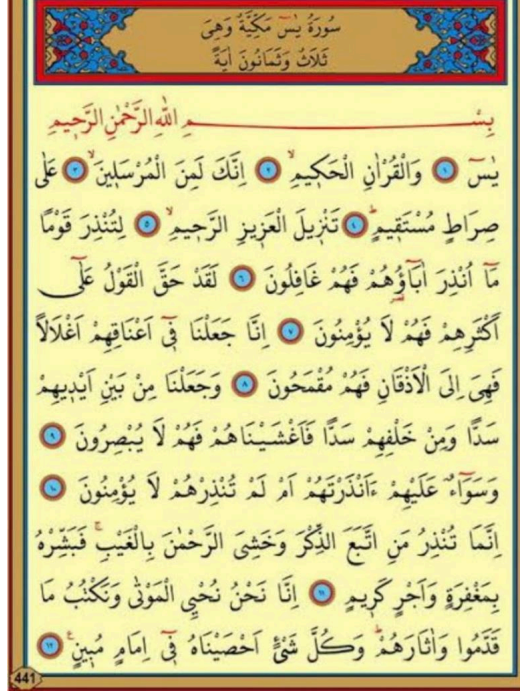 سُورَةُ يٰسٓ مَكِّيَّةٌ وَهِىَ
ثَلَاثٌ وَثَمَانُونَ اٰيَةً
بِسْمِ اللهِ الرَّحْمٰنِ الرَّحٖيمِ
يٰسٓ ﴿١﴾ وَالْقُرْاٰنِ الْحَكٖيمِۙ ﴿٢﴾ اِنَّكَ لَمِنَ الْمُرْسَلٖينَۙ ﴿٣﴾ عَلٰى
صِرَاطٍ مُسْتَقٖيمٍؕ ﴿٤﴾ تَنْزٖيلَ الْعَزٖيزِ الرَّحٖيمِۙ ﴿٥﴾ لِتُنْذِرَ قَوْمًا
مَٓا اُنْذِرَ اٰبَٓاؤُ۬هُمْ فَهُمْ غَافِلُونَ ﴿٦﴾ لَقَدْ حَقَّ الْقَوْلُ عَلٰٓى
اَكْثَرِهِمْ فَهُمْ لَا يُؤْمِنُونَ ﴿٧﴾ اِنَّا جَعَلْنَا فٖٓى اَعْنَاقِهِمْ اَغْلَالًا
فَهِىَ اِلَى الْاَذْقَانِ فَهُمْ مُقْمَحُونَ ﴿٨﴾ وَجَعَلْنَا مِنْ بَيْنِ اَيْدٖيهِمْ
سَدًّا وَمِنْ خَلْفِهِمْ سَدًّا فَاَغْشَيْنَاهُمْ فَهُمْ لَا يُبْصِرُونَ ﴿٩﴾
وَسَوَٓاءٌ عَلَيْهِمْ ءَاَنْذَرْتَهُمْ اَمْ لَمْ تُنْذِرْهُمْ لَا يُؤْمِنُونَ ﴿١٠﴾
اِنَّمَا تُنْذِرُ مَنِ اتَّبَعَ الذِّكْرَ وَخَشِىَ الرَّحْمٰنَ بِالْغَيْبِۚ فَبَشِّرْهُ
بِمَغْفِرَةٍ وَاَجْرٍ كَرٖيمٍ ﴿١١﴾ اِنَّا نَحْنُ نُحْيِى الْمَوْتٰى وَنَكْتُبُ مَا
قَدَّمُوا وَاٰثَارَهُمْؕ وَكُلَّ شَىْءٍ اَحْصَيْنَاهُ فٖٓى اِمَامٍ مُبٖينٍ۟ ﴿١٢﴾
441